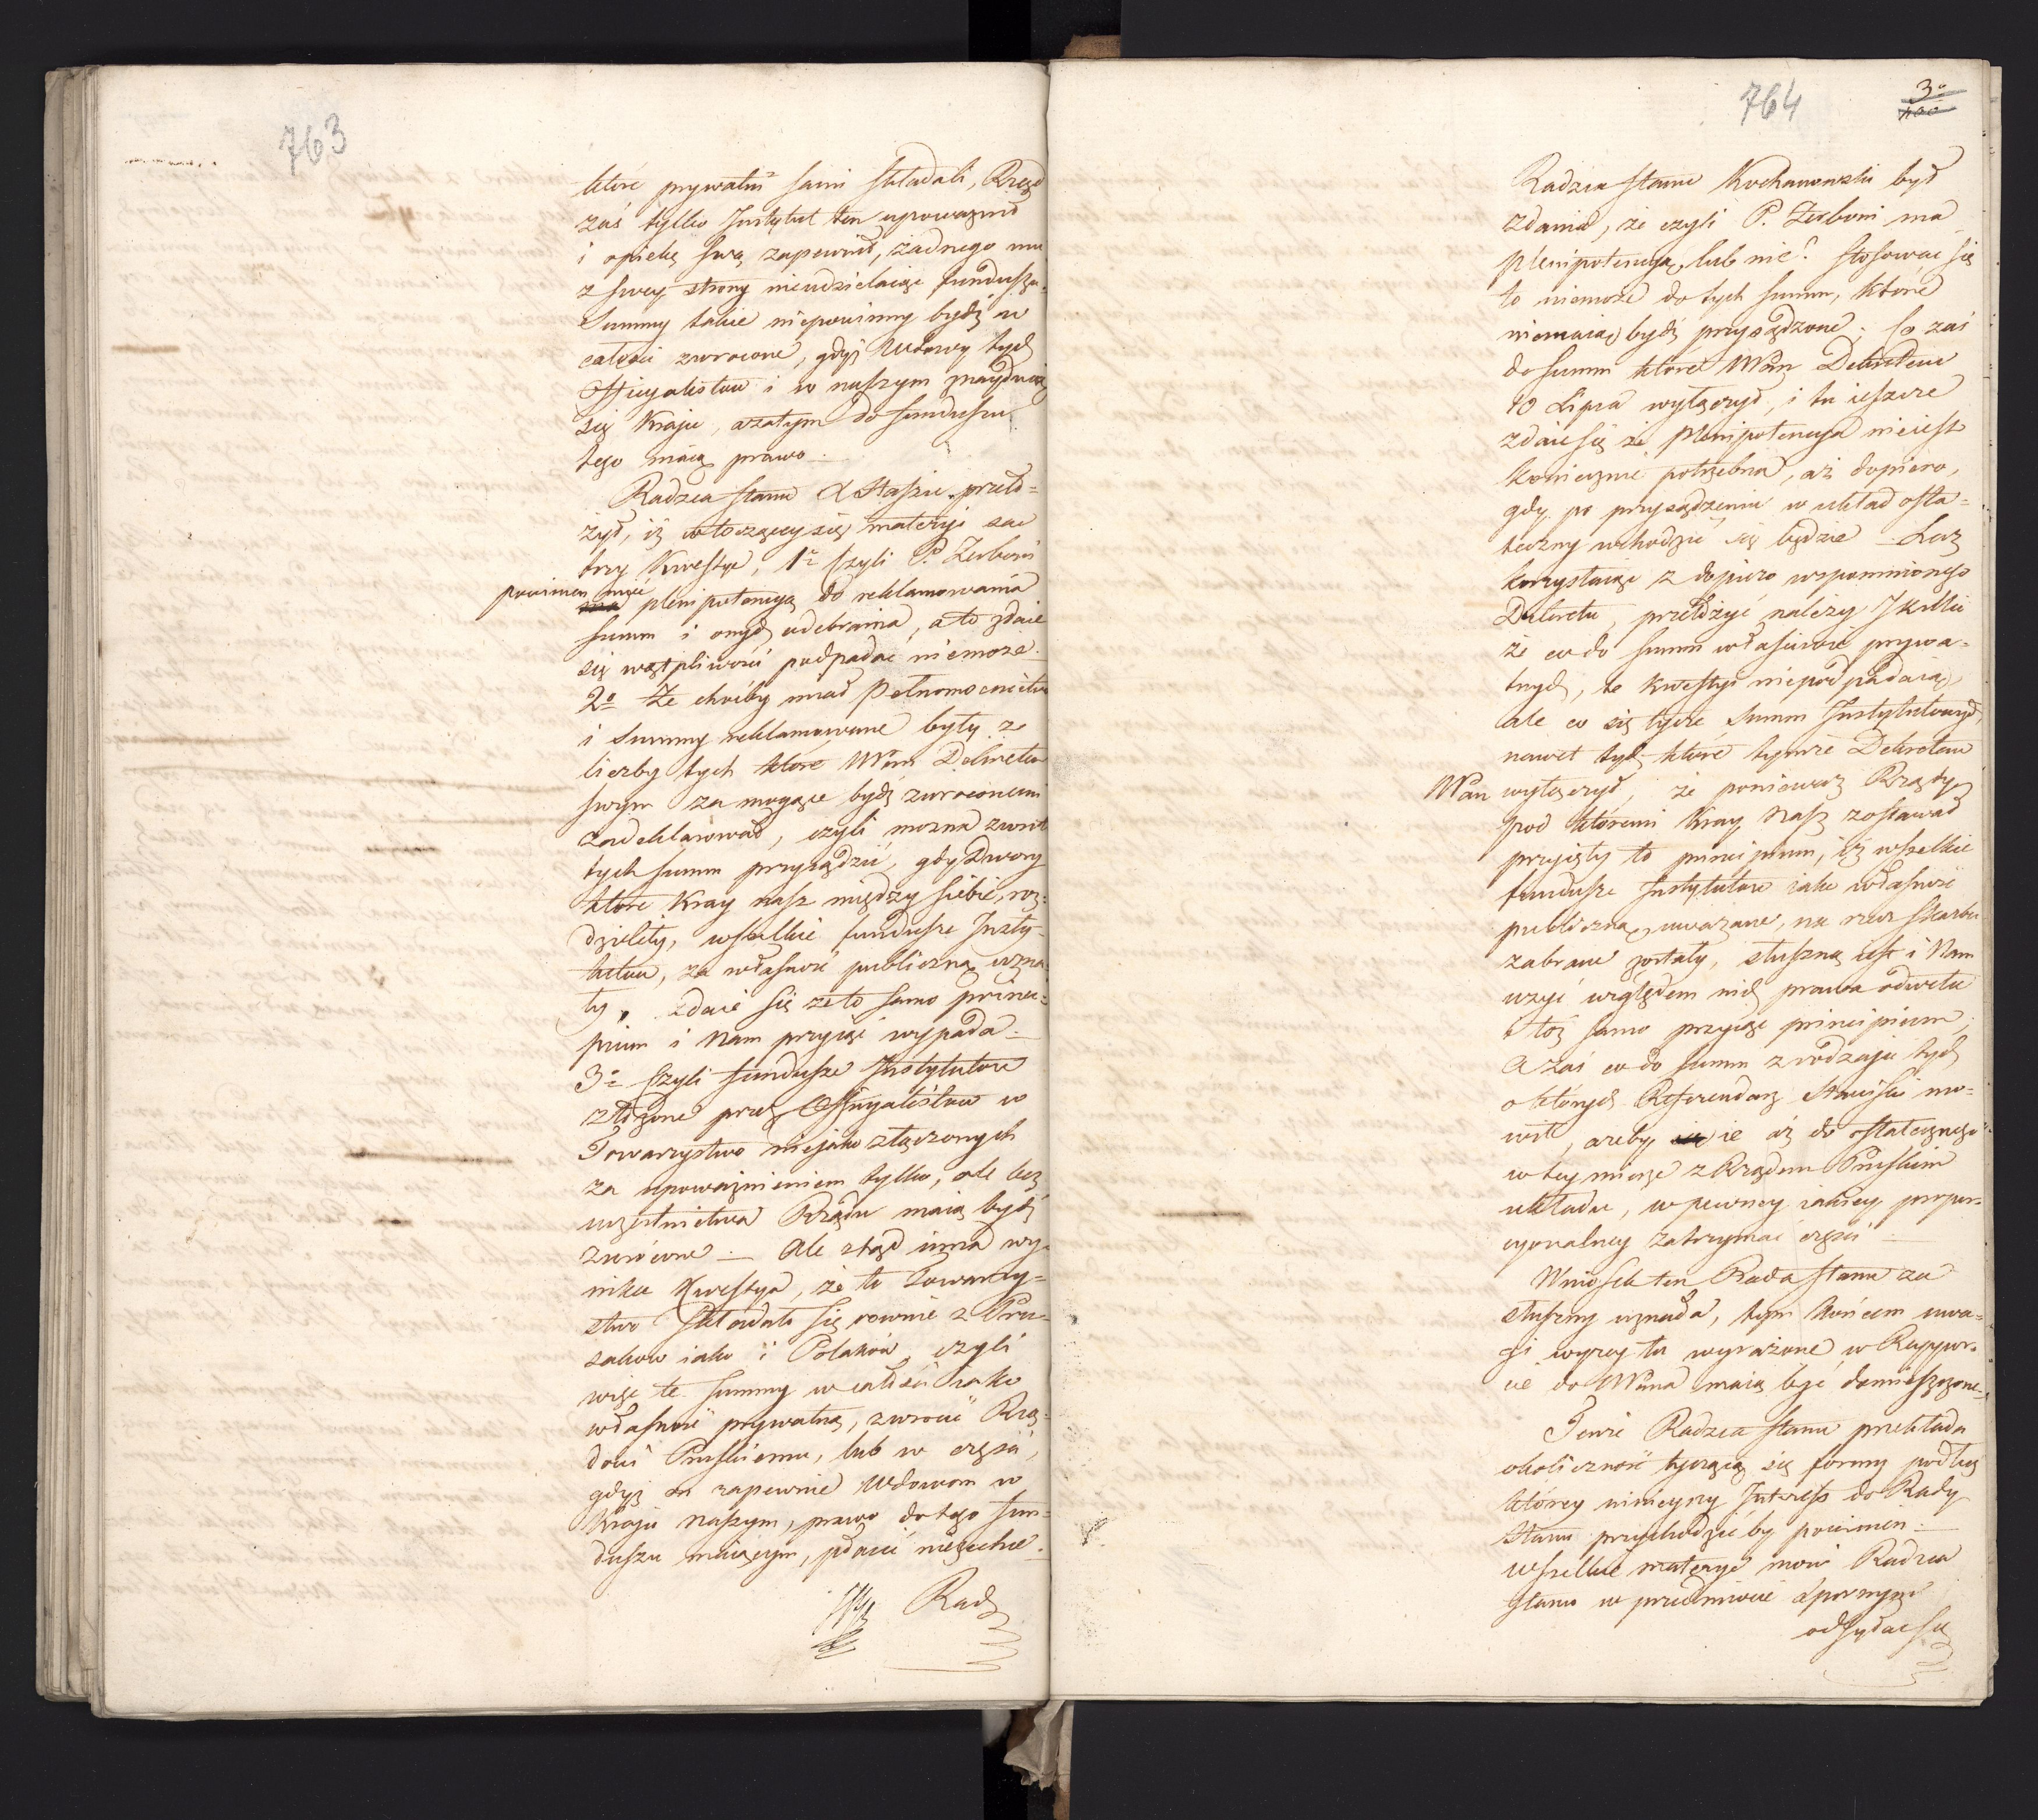 763
które prywatni sami składali, Rząd
zaś tylko Instytut ten upoważnił
i opiekę swą zapewnił, żadnego mu
z swey strony nieudzielaiąc funduszu.
Summy takie niepowinny bydź w
całości zwrocone, gdyż Wdowy tych
Officyalistow i w naszym znayduią
się Kraju, azatym do funduszu
tego maią prawo.
Radzca Stanu X Staszic przeło=
żył, iż w toczącey się materyi są
trzy Kwestye, 1º Czyli P. Zerboni
powinien mieć plenipotencyą do reklamowania
summ i onych odebrania, a to zdaie
się wątpliwości podpadać niemoże.
2º Że choćby miał Pełnomocnictwo
i Summy reklamowane były z
liczby tych które NPan Dekretem
swym za mogące bydź zwroconemi
zadeklarował, czyli można zwrot
tych summ przysądzić, gdy Dwory
które Kray nasz między siebie roz=
dzieliły, wszelkie fundusze Insty=
tutow, za własność publiczną uzna=
ły, zdaie się że to samo princi=
pium i Nam przyiąć wypada.
3º Czyli fundusze Instytutow
złożone przez Officyalistow w
Towarzystwo niejako złączonych
za upoważnieniem tylko, ale bez
uczestnictwa Rządu maią bydź
zwrócone. Ale ztąd inna wy=
nika Kwestya, że to Towarzy=
stwo składało się rownie z Pru=
sakow iako i Polaków, czyli
więc te summy w całości iako
własność prywatną, zwrocić Rzą=
dowi Pruskiemu, lub w części,
gdyż on zapewne Wdowom w
Kraju naszym, prawo do tego fun=
duszu maiącym, płacić niezechce.
Radz
764
3º
Radzca Stanu Kochanowski był
zdania, że czyli P. Zerboni ma
plenipotencyą, lub nie? stosować się
to niemoże do tych summ, które
niemaią bydź przysądzone. Co zaś
do summ które NPan Dekretem
10 Lipca wyłączył, i tu ieszcze
zdaie się że plenipotencya nieiest
koniecznie potrzebna, aż dopiero,
gdy po przysądzeniu w układ osta=
teczny wchodzić się będzie. Lecz
korzystaiąc z dopiero wspomnionego
Dekretu, przełożyć należy JKMci
że co do summ własciwie prywa=
tnych, te kwestyi niepodpadaią,
ale co się tycze summ Instytutowych
nawet tych które tymże Dekretem
NPan wyłączył, że ponieważ Rządy
pod któremi Kray Nasz zostawał
przyięły to principium, iż wszelkie
fundusze Instytutow iako własność
publiczną uważane, na rzecz Skarbu
zabrane zostały, słuszną iest i Nam
użyć względem nich prawa odwetu
i toż samo przyiąć principium,
A zaś co do summ z rodzaju tych
o których Referendarz Stanisła mo=
wił, ażeby ie aż do ostatecznego
w tey mierze z Rządem Pruskim
układu, w pewney iakiey propor=
cyonalney zatrzymać części.
Wniosek ten Rada Stanu za
słuszny uznała, tym końcem uwa=
gi wyżey tu wyrażone w Rappor=
cie do NPana maią być domieszczone.
Tenże Radzca Stanu przekłada
okoliczność tyczącą się formy podług
którey ninieyszy Interess do Rady
Stanu przychodzić by powinien.
Wszelkie materye mowi Radzca
Stanu w przedmiocie spornym
odsyłać się